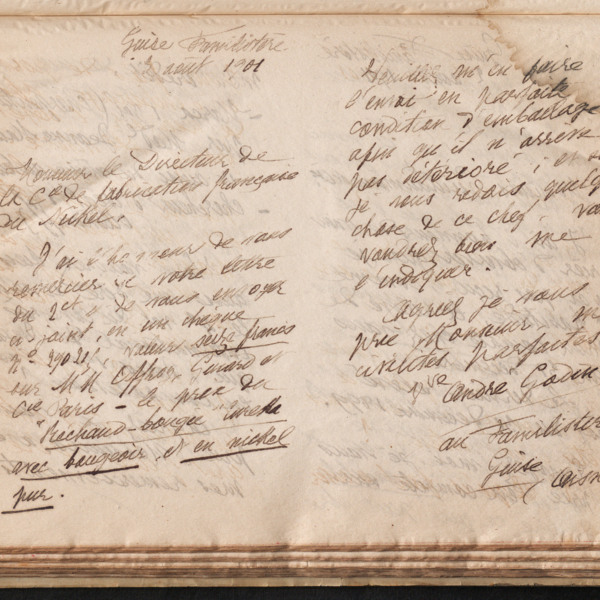 Guise Familistère
3 août 1901
Monsieur le Directeur de
la Cie de fabrication française
du Nickel.
J'ai l'honneur de vous
remercier de votre lettre
du 2 ct & de vous envoyer
ci-joint, en un chèque
valeur seize francs
sur MM Offroy, Guiard et
Cie Paris - le prix du
"Réchaud-bougie"
avec bougeoir, et en nickel
pur.
Veuillez m'en faire
l'envoi en parfaite
condition d'emballage
afin qu'il n'arrive
pas détérioré ; et si
je vous redois quelque
chose de ce chef,
voudrez bien me
l'indiquer.
Agréez je vous
prie Monsieur
civilités parfaites
Vve André Godin
au Familistère
Guise
(Aisne